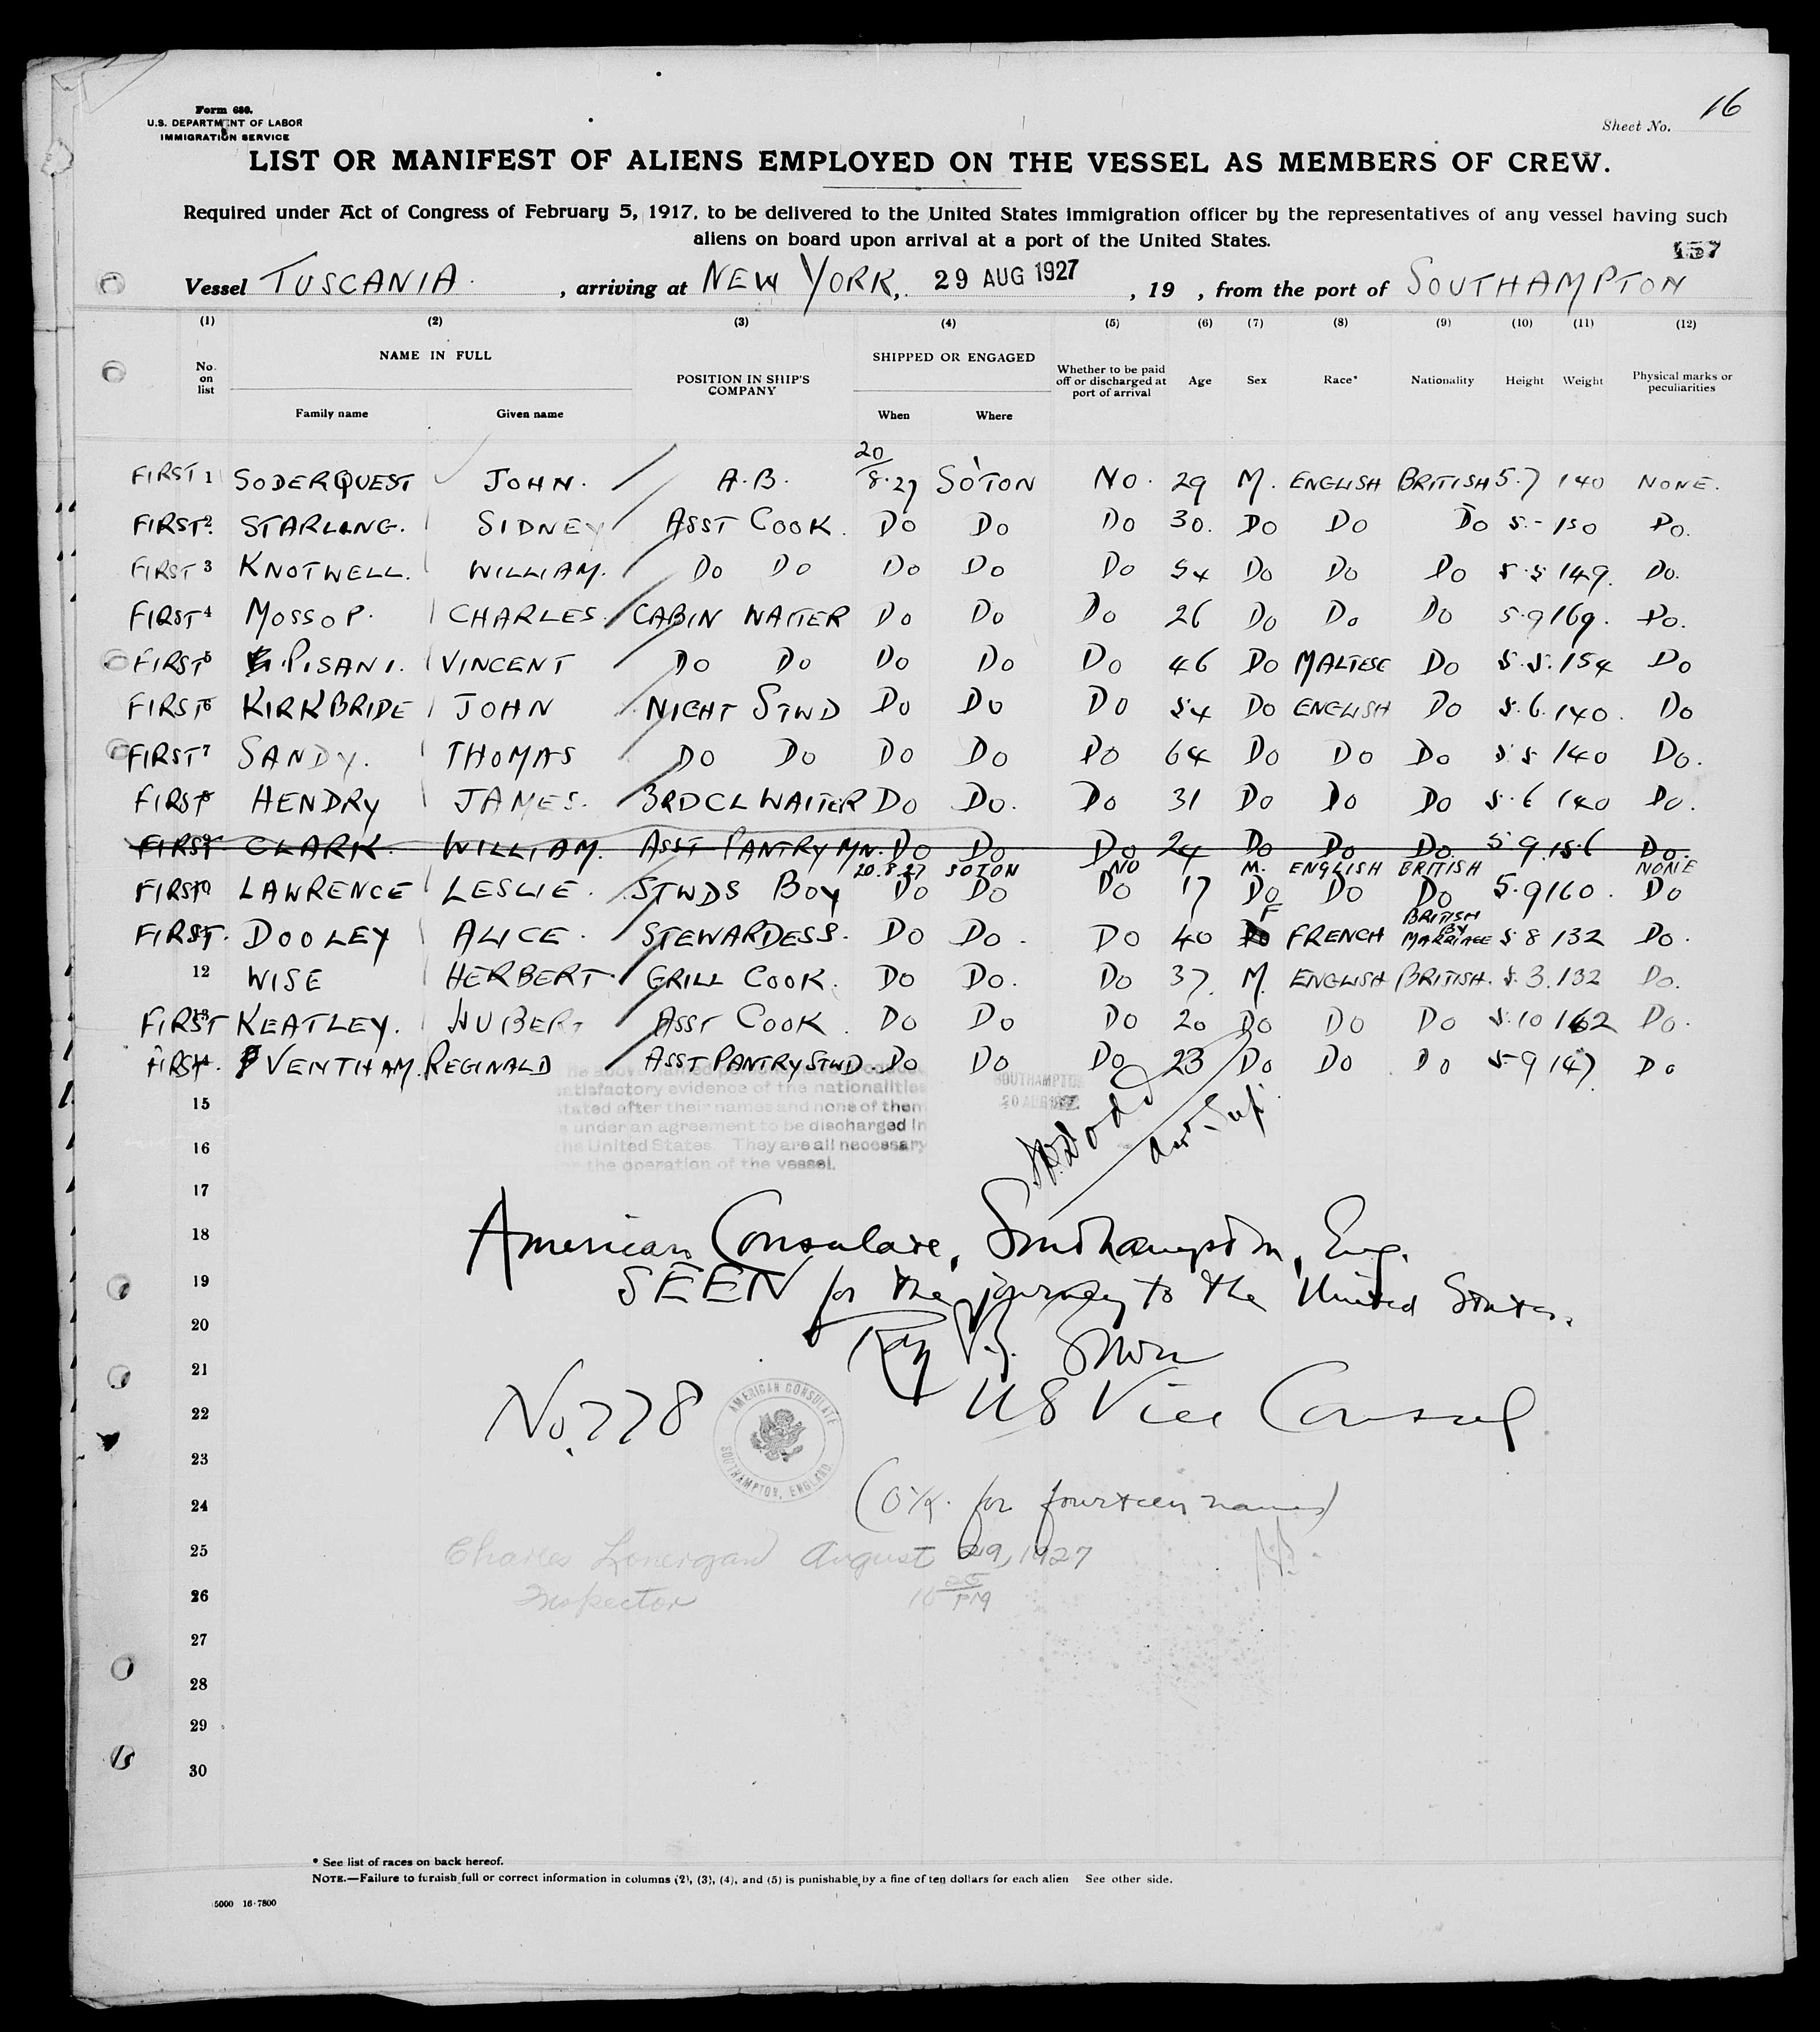 Form 680.
U.S. DEPARTMENT OF LABOR
IMMIGRATION SERVICE
Sheet No. 16
LIST OR MANIFEST OF ALIENS EMPLOYED ON THE VESSEL AS MEMBERS OF CREW.
Required under Act of Congress of February 5, 1917, to be delivered to the United States immigration officer by the representatives of any vessel having such
aliens on board upon arrival at a port of the United States.
157
Vessel TUSCANIA. , arriving at NEW YORK, 29 AUG 1927 , 19 , from the port of SOUTHAMPTON
(1) (2) (3) (4) (5) (6) (7) (8) (9) (10) (11) (12)
No. on list NAME IN FULL Family name Given name POSITION IN SHIP'S COMPANY SHIPPED OR ENGAGED When Where Whether to be paid off or discharged at port of arrival Age Sex Race* Nationality Height Weight Physical marks or peculiarities
FIRST 1 SODERQUEST JOHN. A.B. 20/8.27 SO'TON NO. 29 M. ENGLISH BRITISH 5.7 140 NONE.
FIRST 2. STARLING. SIDNEY ASST COOK. DO DO DO 30. DO DO DO 5.- 150 DO.
FIRST 3 KNOTWELL. WILLIAM. DO DO DO DO DO 54 DO DO DO 5.5 149. DO.
FIRST 4 MOSSOP. CHARLES. CABIN WAITER DO DO DO 26 DO DO DO 5.9 169. DO.
FIRST 5 PISANI. VINCENT DO DO DO DO DO 46 DO MALTESE DO 5.5. 154 DO
FIRST 6 KIRKBRIDE JOHN NIGHT STWD DO DO DO 54 DO ENGLISH DO 5.6. 140. DO
FIRST 7 SANDY. THOMAS DO DO DO DO DO 64 DO DO DO 5.5 140 DO.
FIRST 8 HENDRY JAMES. 3RD CL WAITER DO DO. DO 31 DO DO DO 5.6 140 DO.
FIRST 9 CLARK. WILLIAM. ASST PANTRY MN. DO DO DO 24 DO DO DO. 5 9. 156 DO.
20.8.27 SOTON NO M. ENGLISH BRITISH NONE
FIRST 10 LAWRENCE LESLIE. STWDS BOY DO DO DO 17 DO DO DO 5.9 160. DO
FIRST. DOOLEY ALICE. STEWARDESS. DO DO. DO 40 F FRENCH BRITISH BY MARRIAGE 5 8 132 DO.
12 WISE HERBERT. GRILL COOK. DO DO. DO 37. M. ENGLISH BRITISH. 5.3. 132 DO.
FIRST 13 KEATLEY. HUBERT ASST COOK. DO DO DO 20 DO DO DO 5.10 162 DO.
FIRST 14. VENTHAM. REGINALD ASST PANTRY STWD. DO DO DO 23 DO DO DO 5-9 147 DO
satisfactory evidence of the nationalities
stated after their names and none of them
under an agreement to be discharged in
the United States. They are all necessary
for the operation of the vessel.
SOUTHAMPTON
20 AUG 1927
15
16
17
18
19
20
21
22
23
24
25
26
27
28
29
30
American Consulate, Southampton, Eng.
SEEN for the journey to the United States.
US Vice Consul
No. 778
AMERICAN CONSULATE
SOUTHAMPTON, ENGLAND.
(O.K. for fourteen names)
Charles Lonergan August 29, 1927
Inspector 10 25 PM
* See list of races on back hereof.
NOTE.—Failure to furnish full or correct information in columns (2), (3), (4), and (5) is punishable by a fine of ten dollars for each alien See other side.
5000 16-7800